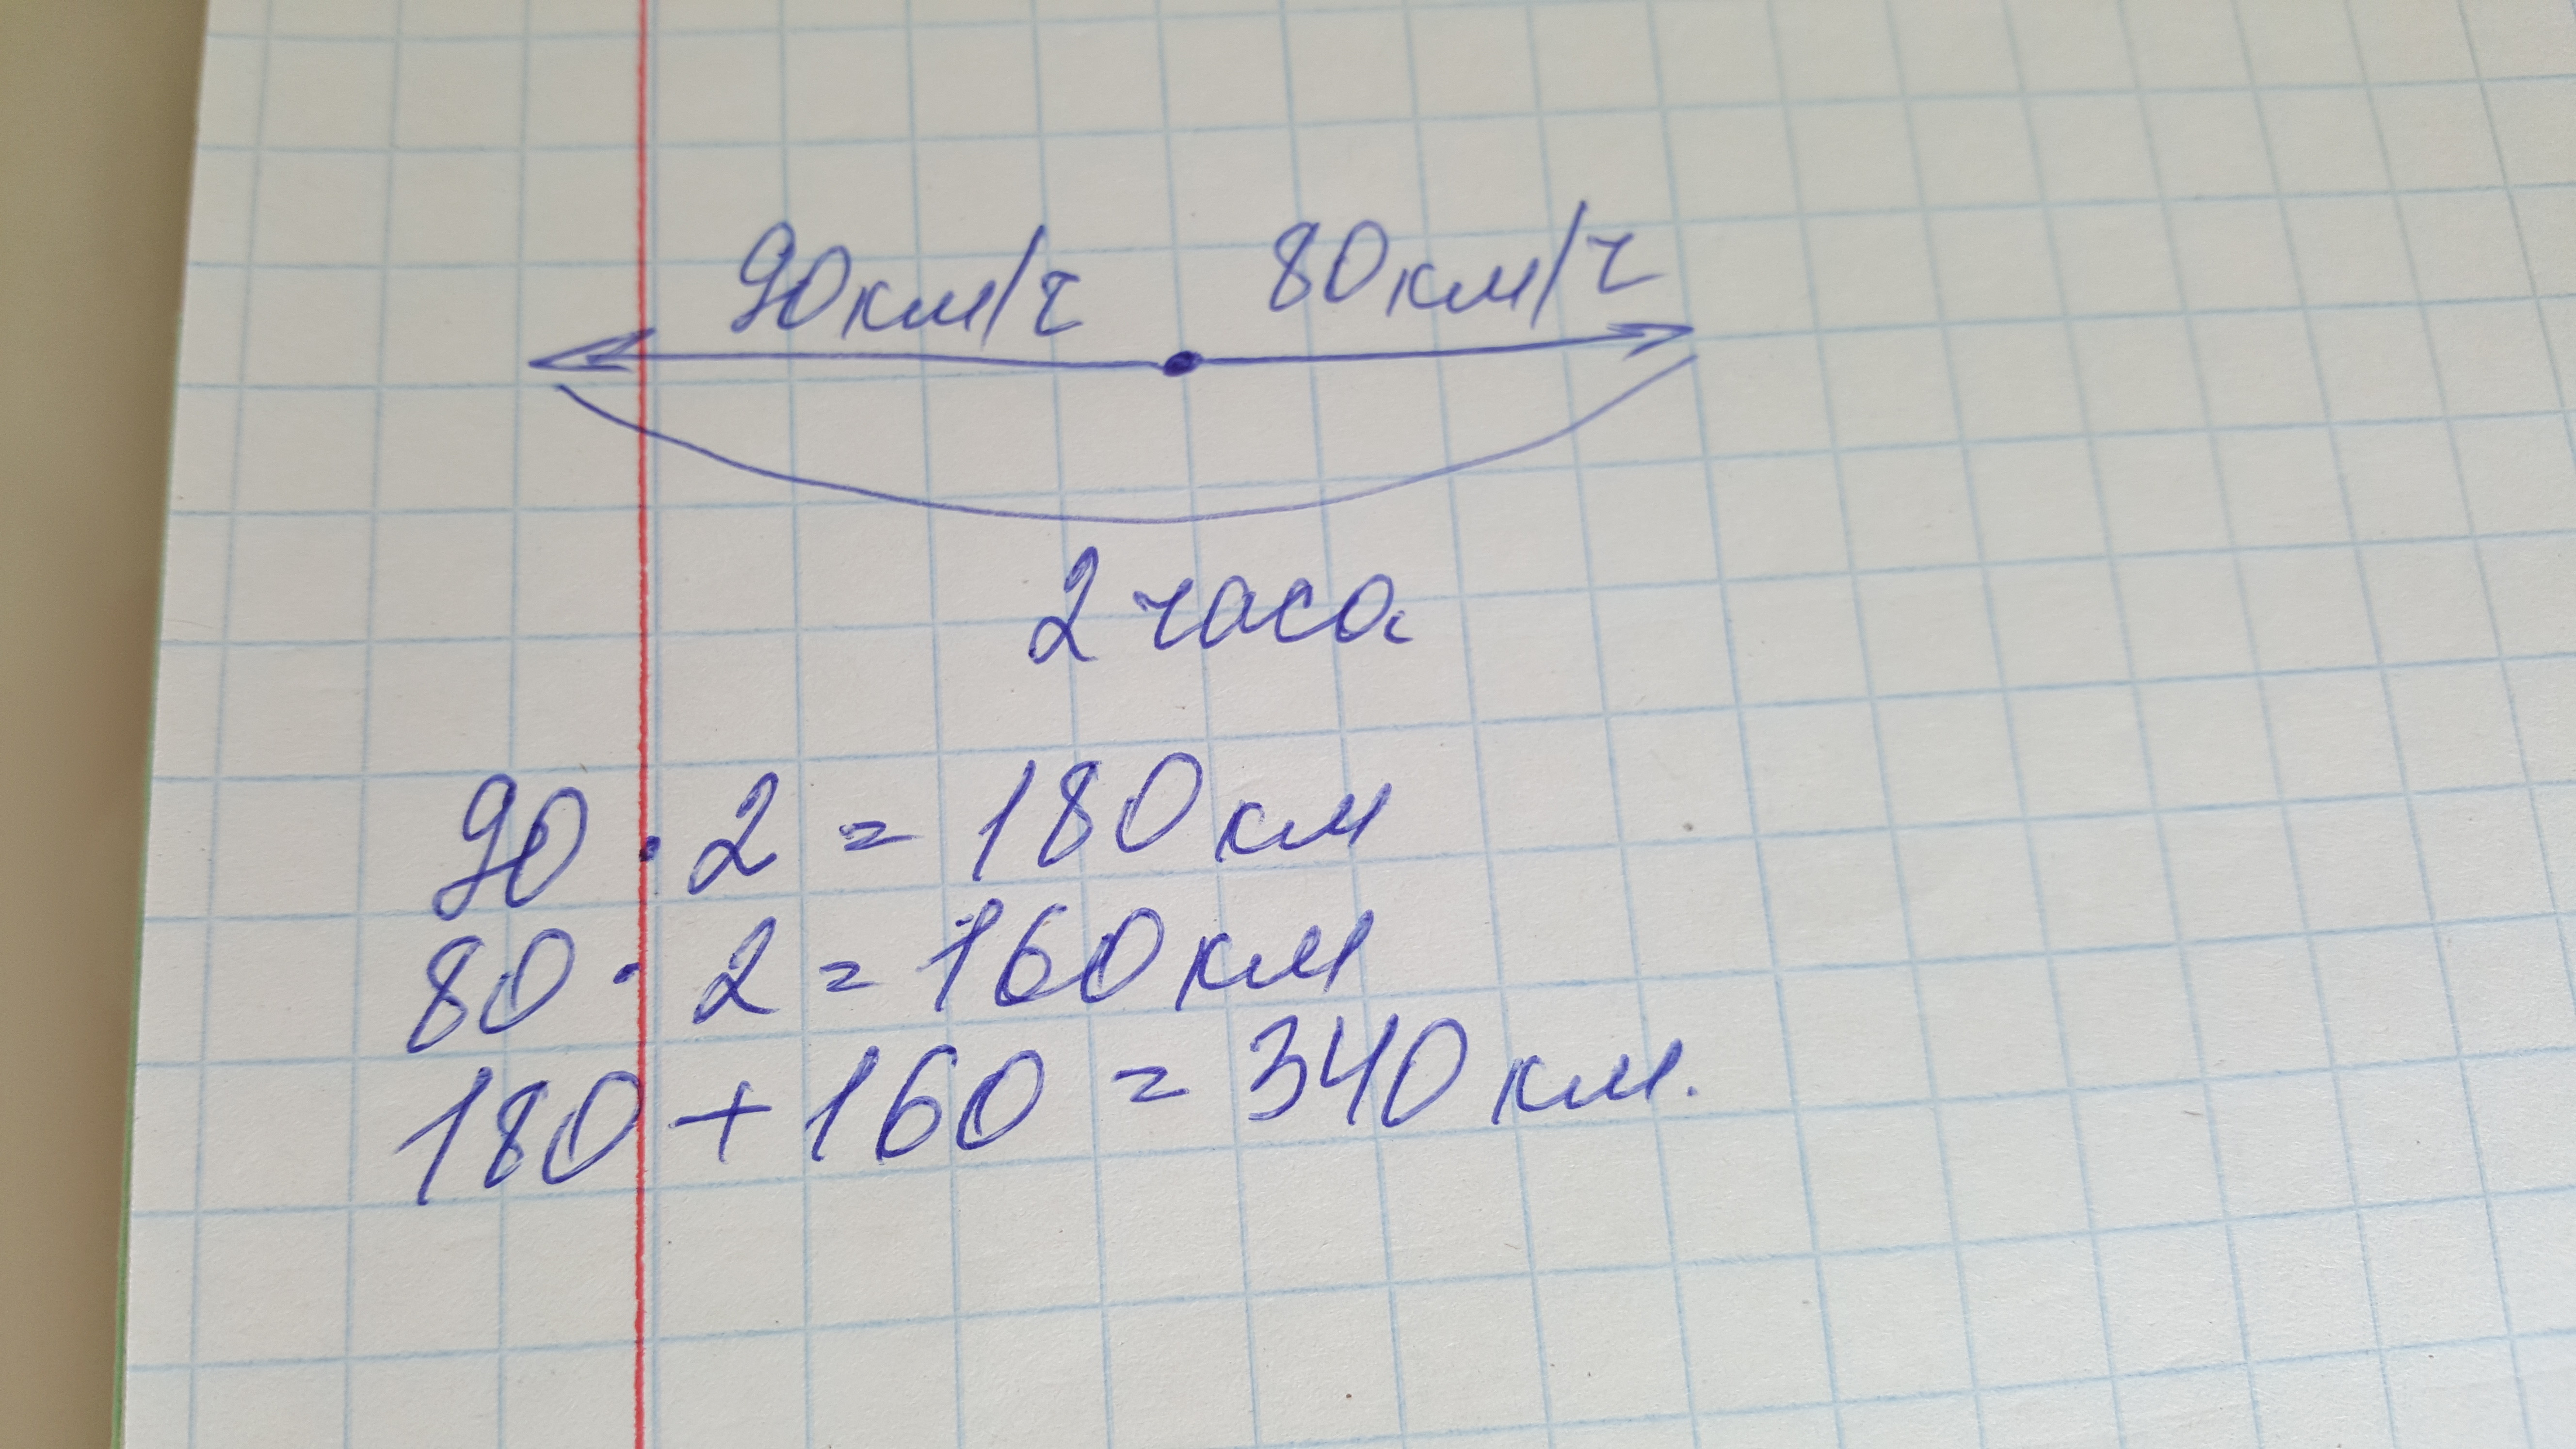 90км/ч 80км/ч
2 часа
90 · 2 = 180 км
80 · 2 = 160 км
180 + 160 = 340 км.